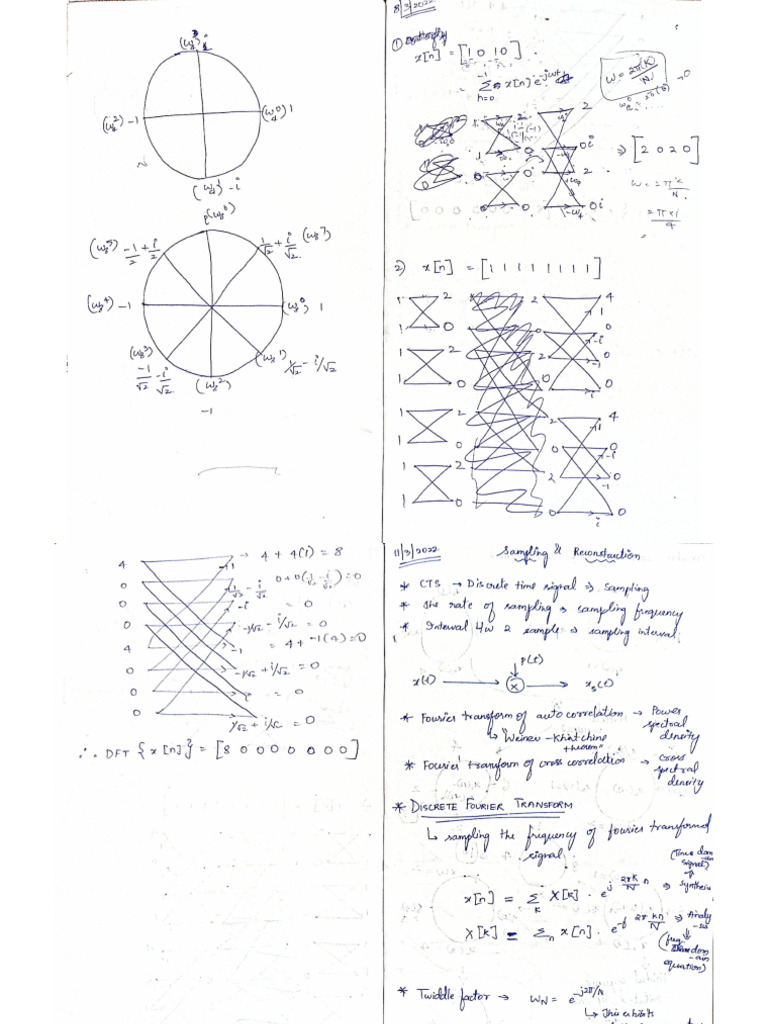 (ω₄³) i
(ω₄²) -1
(ω₄⁰) 1
(ω₄¹) -i
i (ω₈⁶)
(ω₈⁵) -1/2 + i/2
1/√2 + i/√2 (ω₈⁷)
(ω₈⁴) -1
(ω₈⁰) 1
(ω₈³)
-1/√2 - i/√2
(ω₈²)
(ω₈¹) 1/√2 - i/√2
-1
8/3/2022
①
x[n] = [1 0 1 0]
Σ x[n] e^-jωt
n=0
ω = 2π(K)/N
2
0
0
0
2
0 i
2
0 i
⇒ [2 0 2 0]
ω = 2πK/N
2π×1/4
2) x[n] = [1 1 1 1 1 1 1 1]
1 2 2 4
1
1 0 0 0
-i
1 2 2 0
-1
1 0 0 0
i
1 2 2 4
1
1 0 0 0
-i
1 2 2 0
-1
1 0 0
i
4 → 4 + 4(1) = 8
1
0 0 + 0(1/√2 - i/√2) = 0
1/√2 - i/√2
0 -i = 0
0 -1/√2 - i/√2 = 0
4 -1 = 4 + -1(4) = 0
0 -1/√2 + i/√2 = 0
0 i = 0
0 1/√2 + i/√2 = 0
∴ DFT {x[n]} = [8 0 0 0 0 0 0 0]
11/3/2022 Sampling & Reconstruction
* CTS → Discrete time signal ⇒ Sampling
* The rate of sampling ⇒ sampling frequency
* Interval b/w 2 sample ⇒ sampling interval
p(t)
x(t) → ⊗ → xₛ(t)
* Fourier transform of auto correlation → Power
spectral
density
↳ Weiner - Khintchine
theorem
* Fourier transform of cross correlation → Cross
spectral
density
* DISCRETE FOURIER TRANSFORM
↳ sampling the frequency of fourier transformed
signal
(Time dom
-ain
signal)
x[n] = Σ X[k] . e^j 2πk/N n ⇒ synthesis
k
X[k] = Σ x[n] . e^-j 2π kn/N ⇒ Analy
n
-sis
(freq
dom
-ain
equation)
* Twiddle factor → W_N = e^-j2π/N
↳ This exhibits